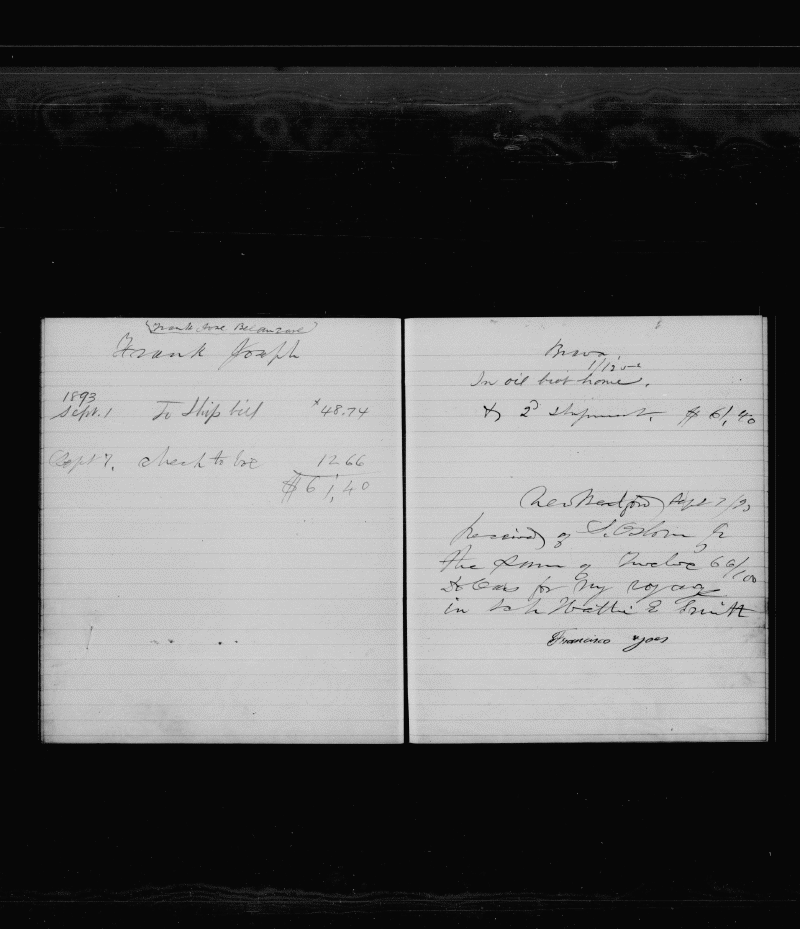 Frank Jose
Frank Joseph
1893
Sept. 1 To Ship bill 48.74
Sept 7. check to bal 12.66
$61.40
Brava
In oil brot home.
2d shipment. $61.40
New Bedford Sept 7/93
Received of S. Osborn Jr
the sum of Twelve 66/100
Dollars for my voyage
in Sch Hattie E Smith
Francisco